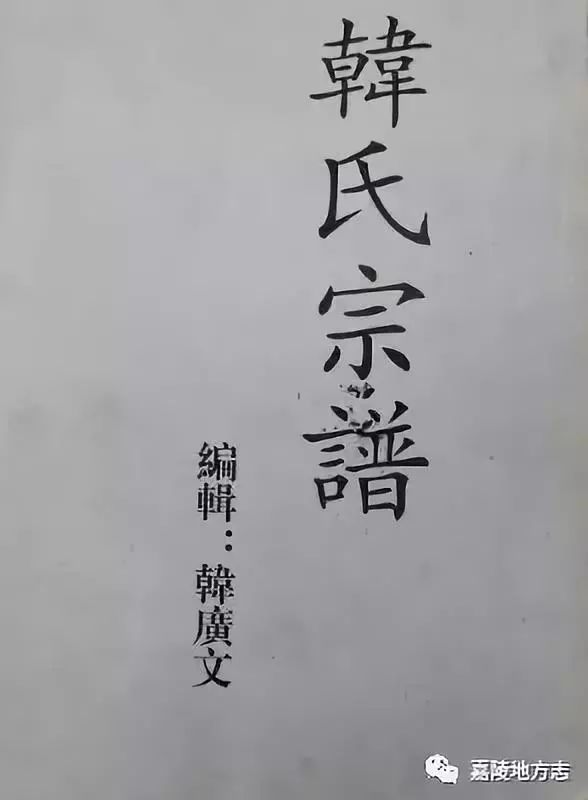 韓氏宗譜
編輯：韓廣文
嘉陵地方志